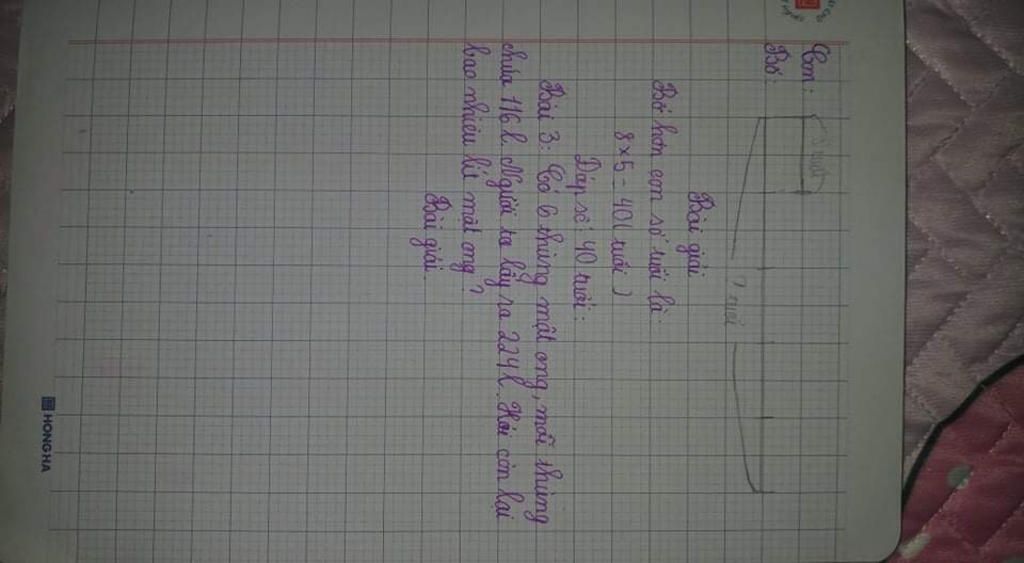 Con:
8 tuổi
Bố:
? tuổi
Bài giải
Bố hơn con số tuổi là:
8 × 5 = 40 (tuổi)
Đáp số: 40 tuổi.
Bài 3: Có 6 thùng mật ong, mỗi thùng
chứa 116l. Người ta lấy ra 224l. Hỏi còn lại
bao nhiêu lít mật ong?
Bài giải
HONG HA